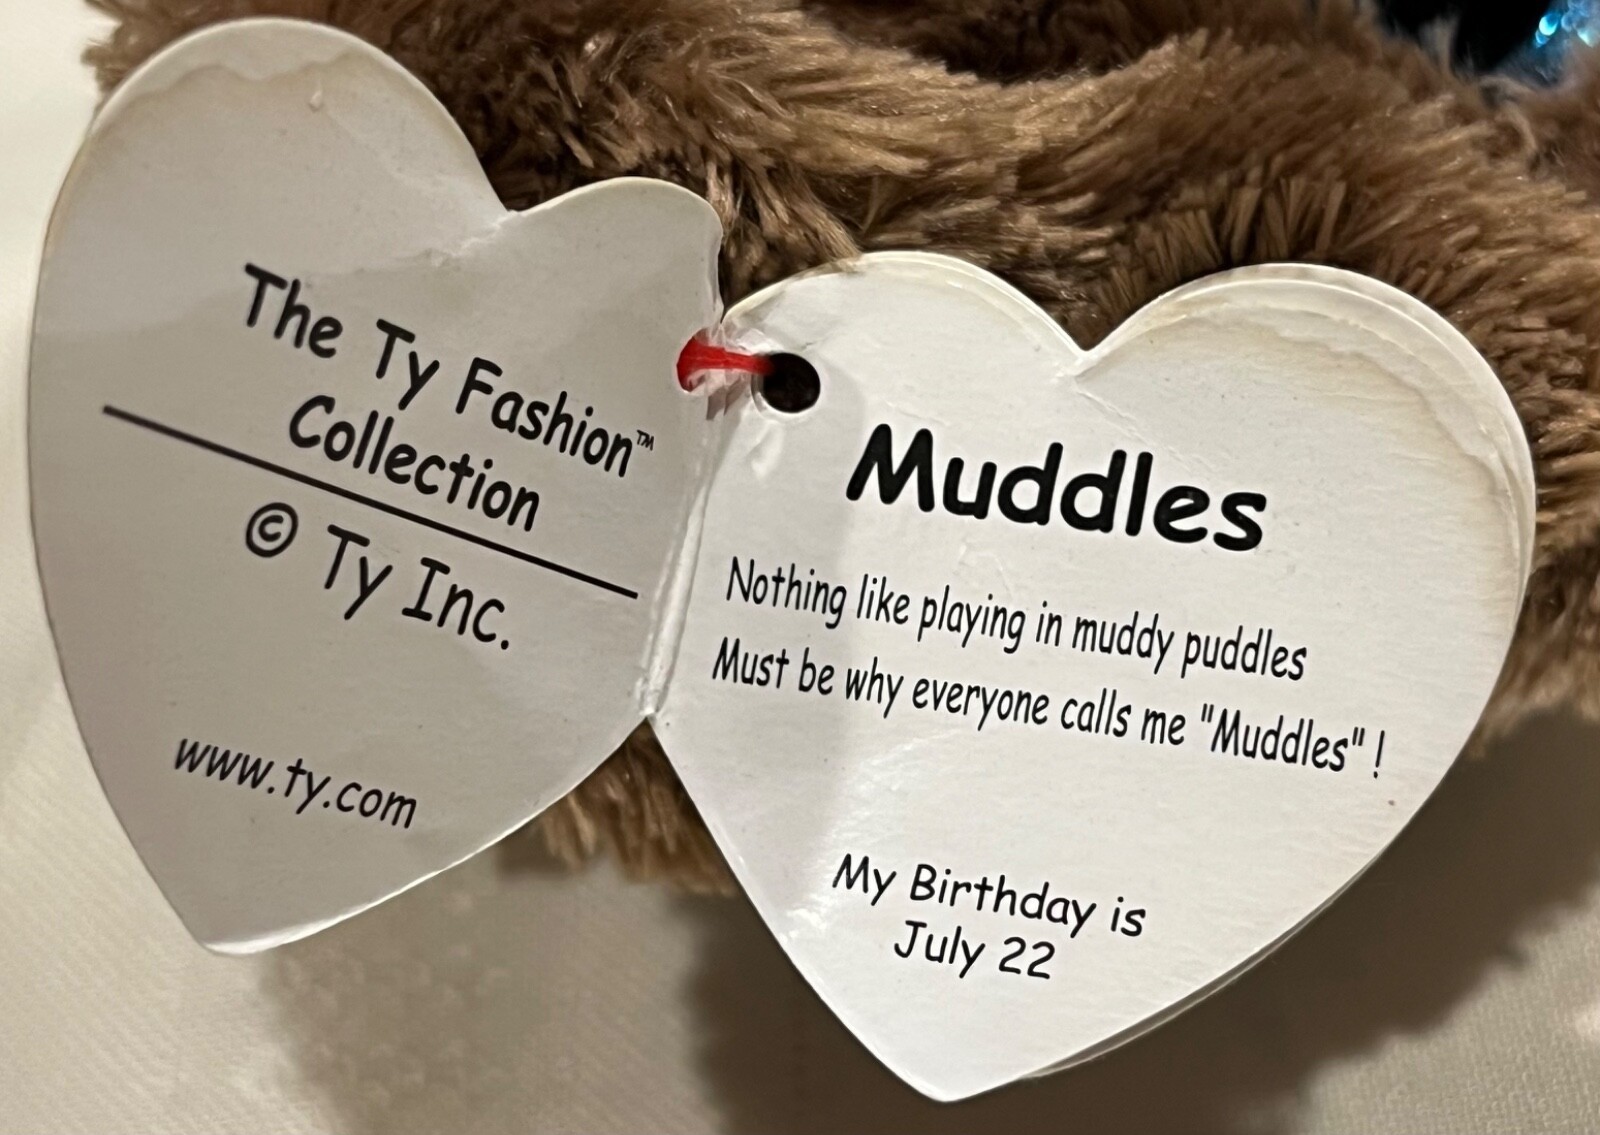 The Ty Fashion™
Collection
© Ty Inc.
www.ty.com
Muddles
Nothing like playing in muddy puddles
Must be why everyone calls me "Muddles" !
My Birthday is
July 22